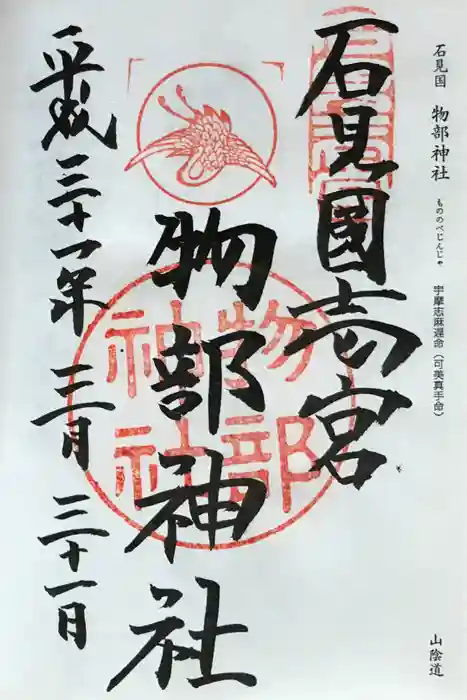 石見国 物部神社 もののべじんじゃ 宇摩志麻遅命(可美真手命)
山陰道
石見國壱宮
物部神社
平成三十一年 三月 三十一日
物部神社